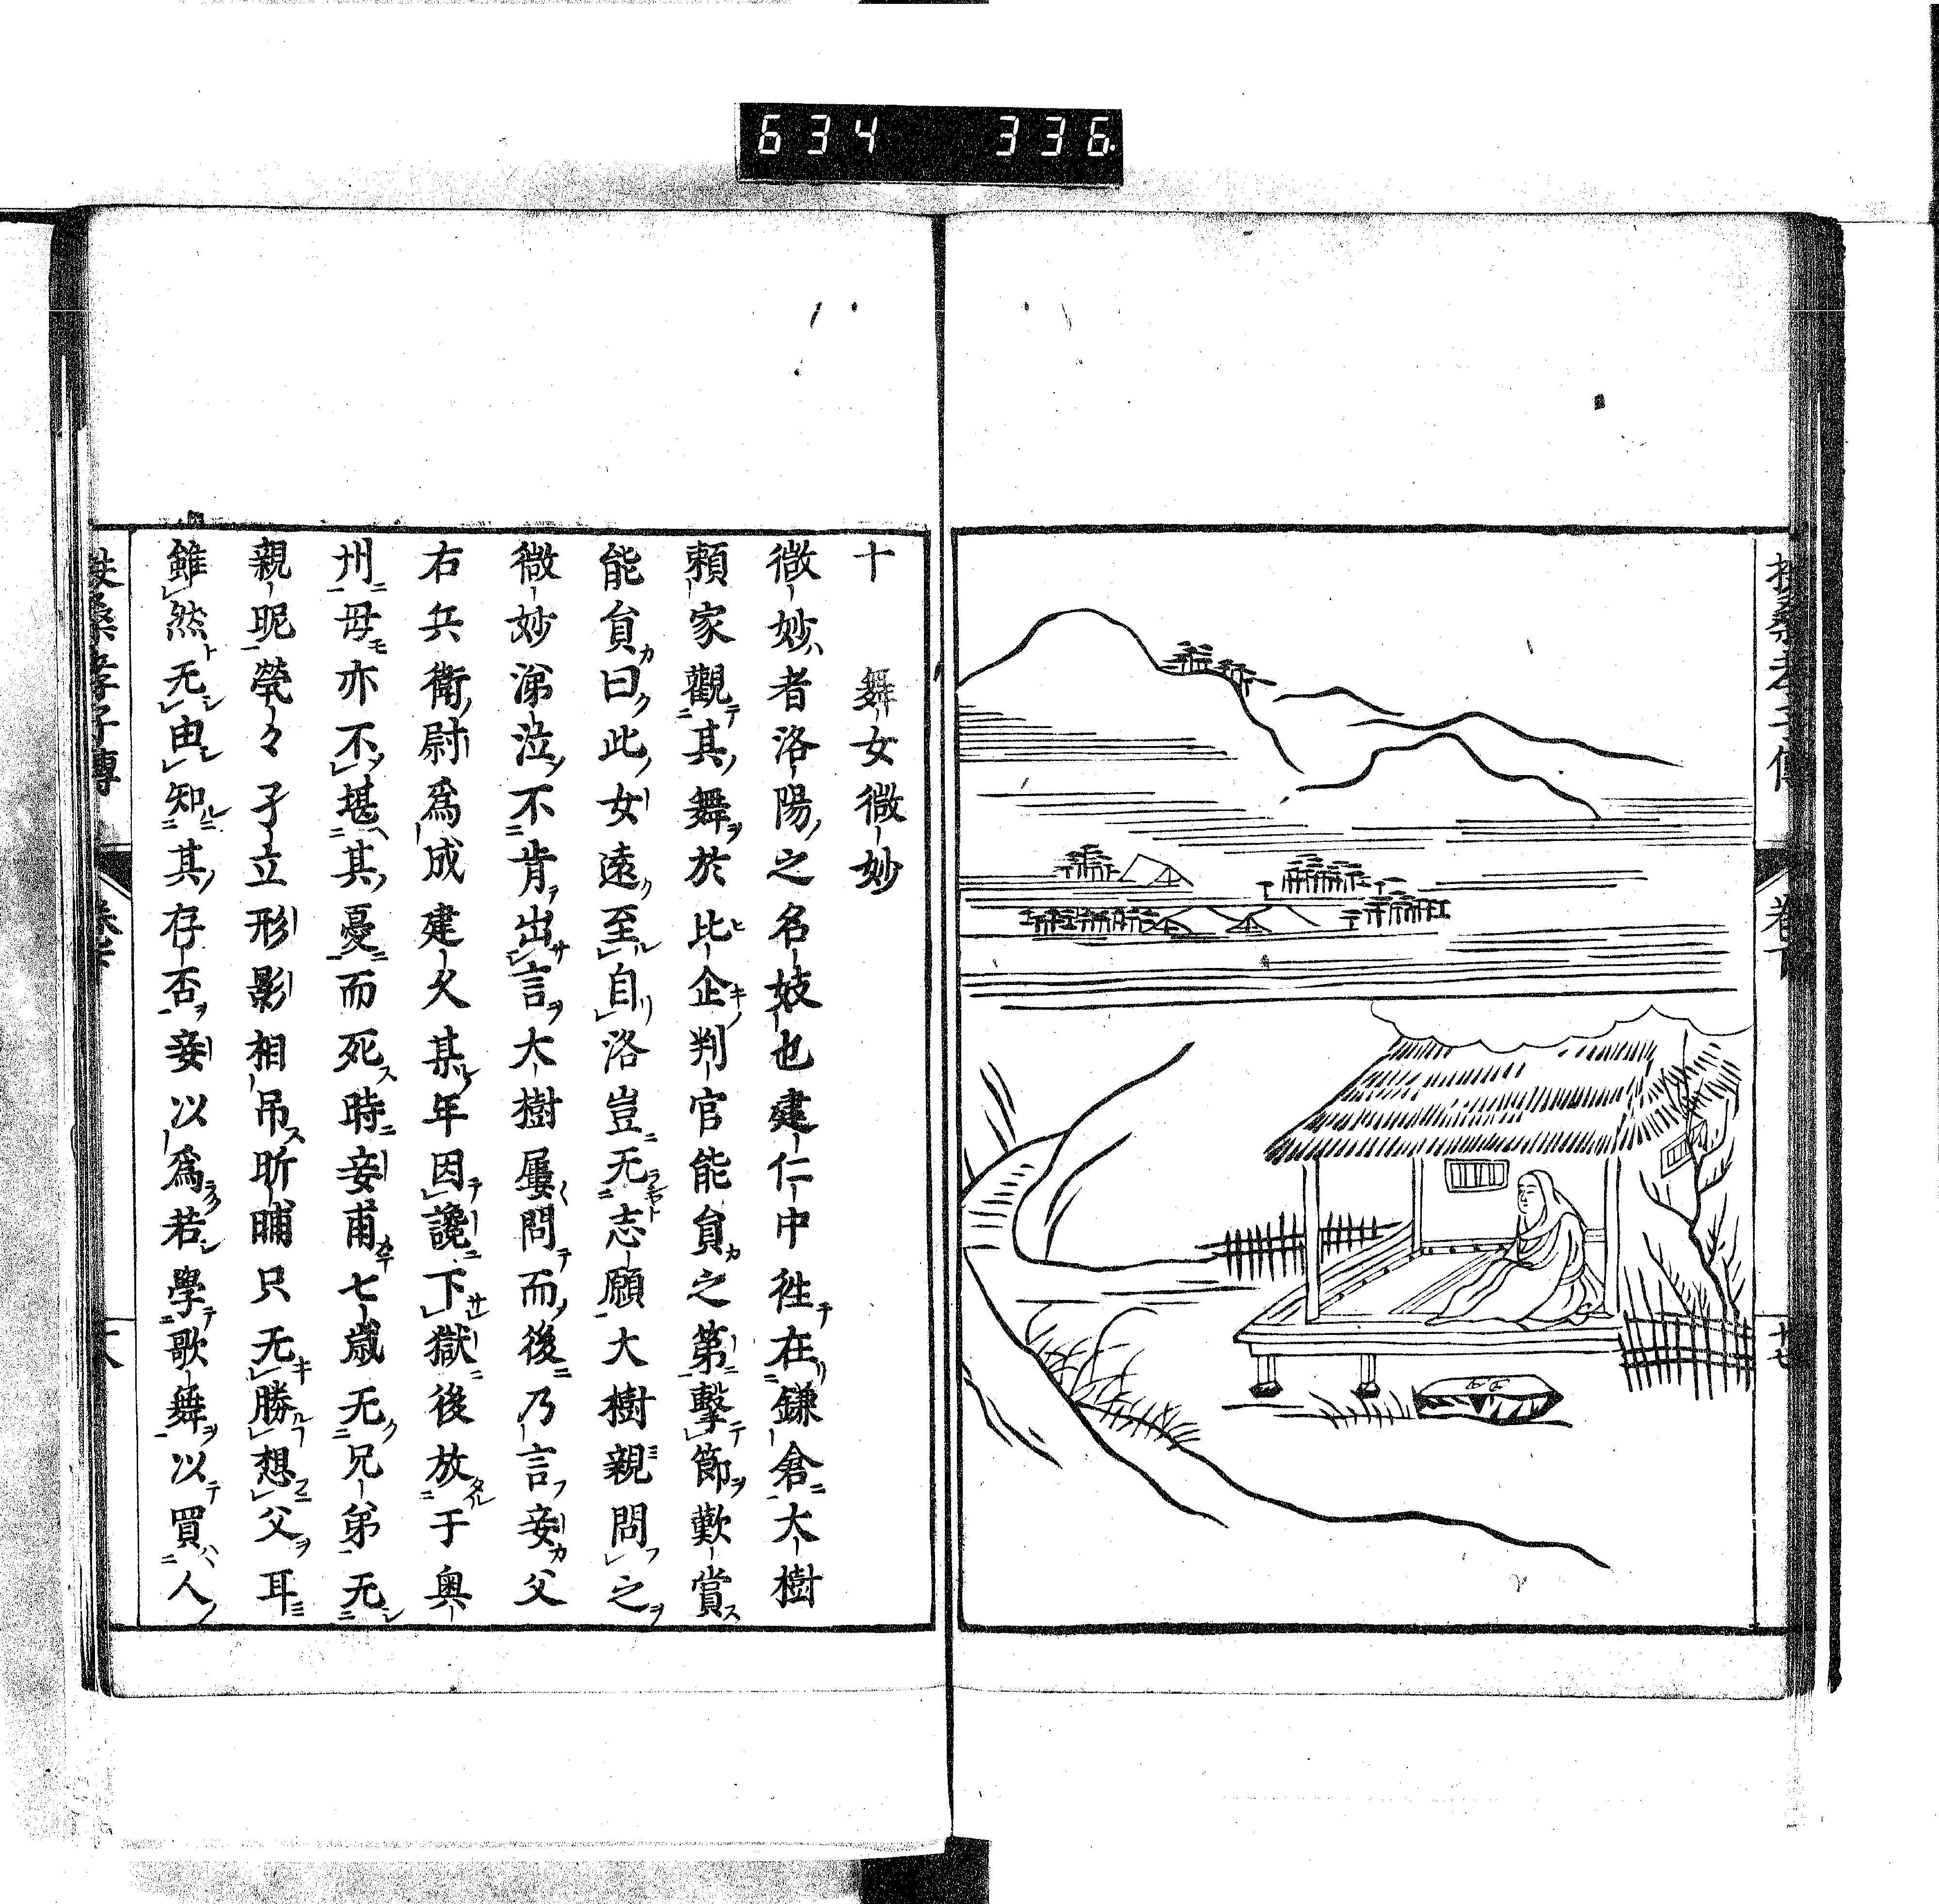 634 336
十 舞女微妙
微妙者洛陽之名妓也建仁中徃在鎌倉大樹
頼家觀其舞於比企判官能貟之第擊節歎賞
能貟曰此女遠至自洛豈无志願大樹親問之
微妙涕泣不肯出言大樹屢問而後乃言妾父
右兵衛尉爲成建久某年因讒下獄後放于奥
州母亦不堪其憂而死時妾甫七歳无兄弟无
親昵煢々孑立形影相吊昕晡只无勝想父耳
雖然无由知其存否妾以爲若學歌舞以買人
扶桑孝子傳